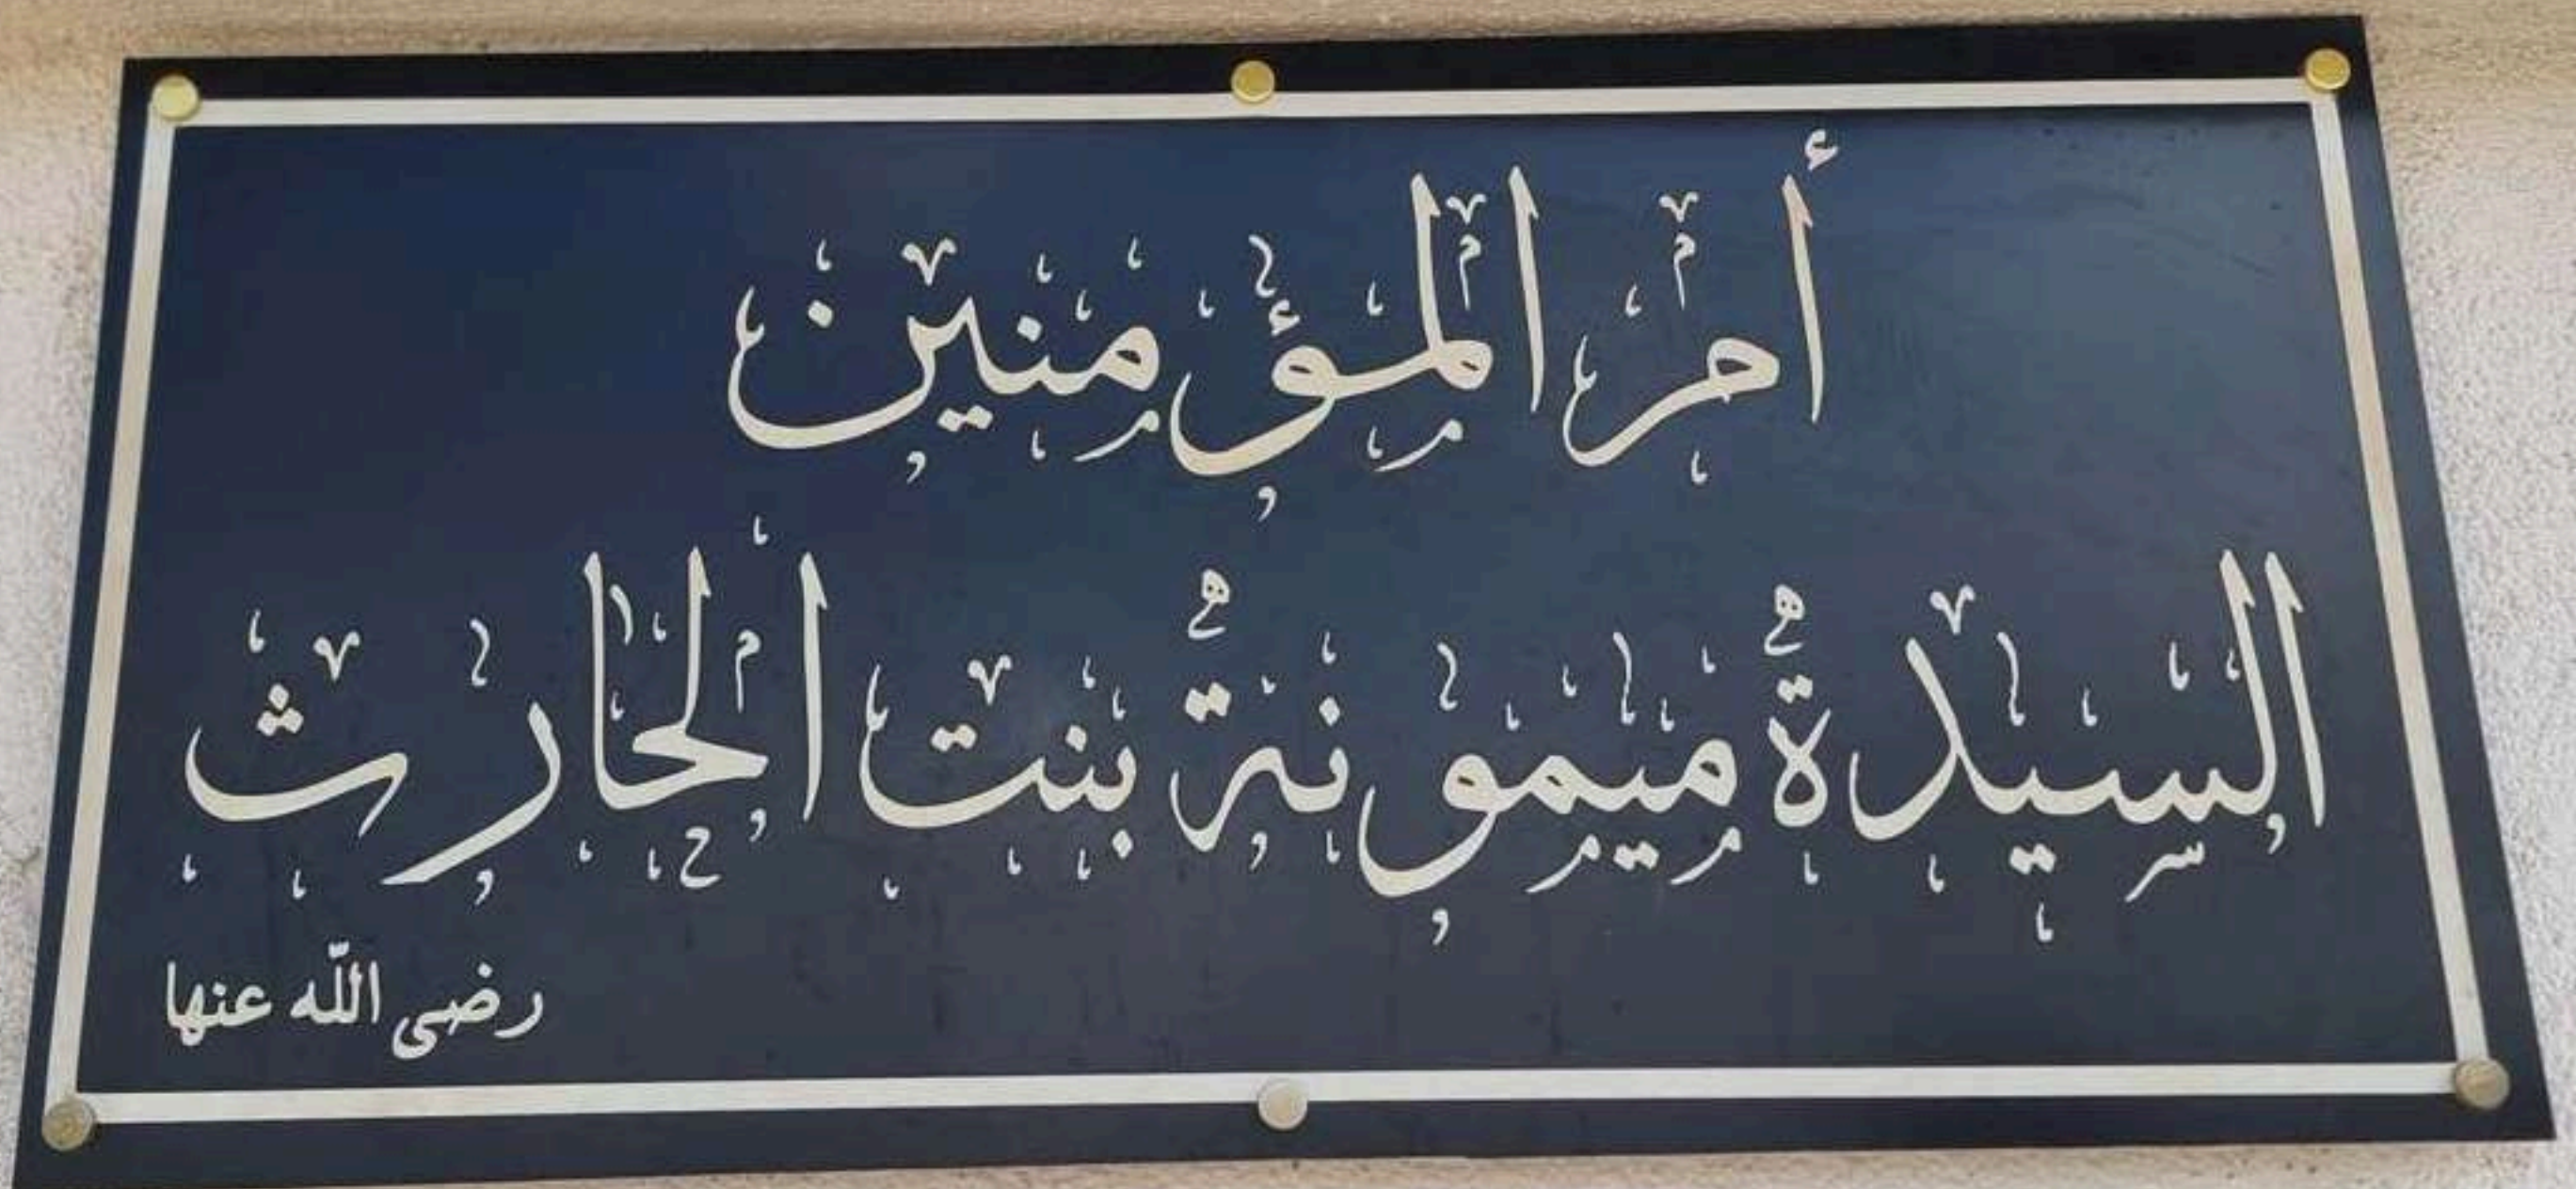 أم المؤمنين
السيدة ميمونة بنت الحارث
رضى الله عنها